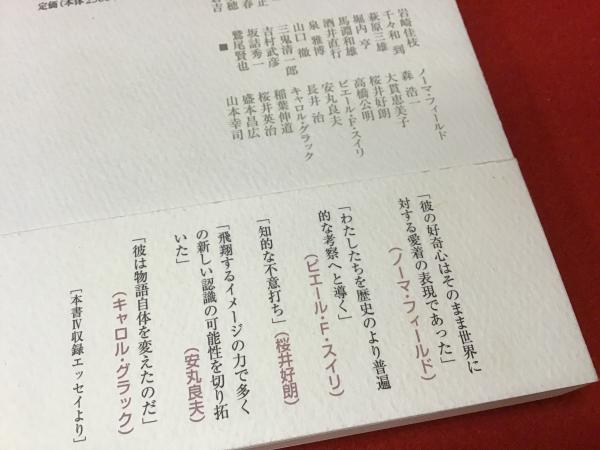 岩崎佳枝
千々和 到
萩原三雄
堀内 亨
馬淵和雄
酒井直行
泉 雅博
山口 徹
三鬼清一郎
吉村武彦
坂詰秀一
鷲尾賢也
■
ノーマ・フィールド
森 浩一
大貫恵美子
桜井好朗
高橋公明
ピエール・F・スイリ
安丸良夫
長井 治
キャロル・グラック
稲葉伸道
桜井英治
盛本昌広
山本幸司
定価(本体
「彼の好奇心はそのまま世界に
対する愛着の表現であった」
(ノーマ・フィールド)
「わたしたちを歴史のより普遍
的な考察へと導く」
(ピエール・F・スイリ)
「知的な不意打ち」(桜井好朗)
「飛翔するイメージの力で多く
の新しい認識の可能性を切り拓
いた」(安丸良夫)
「彼は物語自体を変えたのだ」
(キャロル・グラック)
[本書Ⅳ収録エッセイより]